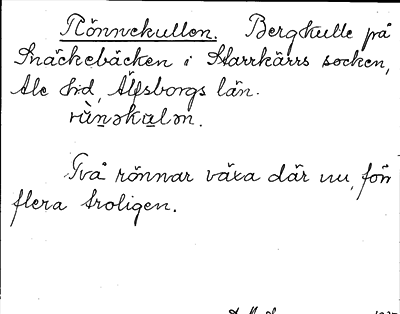 Rönnekullen. Bergkulle på
Snäckebäcken i Starrkärrs socken,
Ale hd, Älfsborgs län.
rùn̠əkul̠ən.
Två rönnar växa där nu, förr
flera troligen.